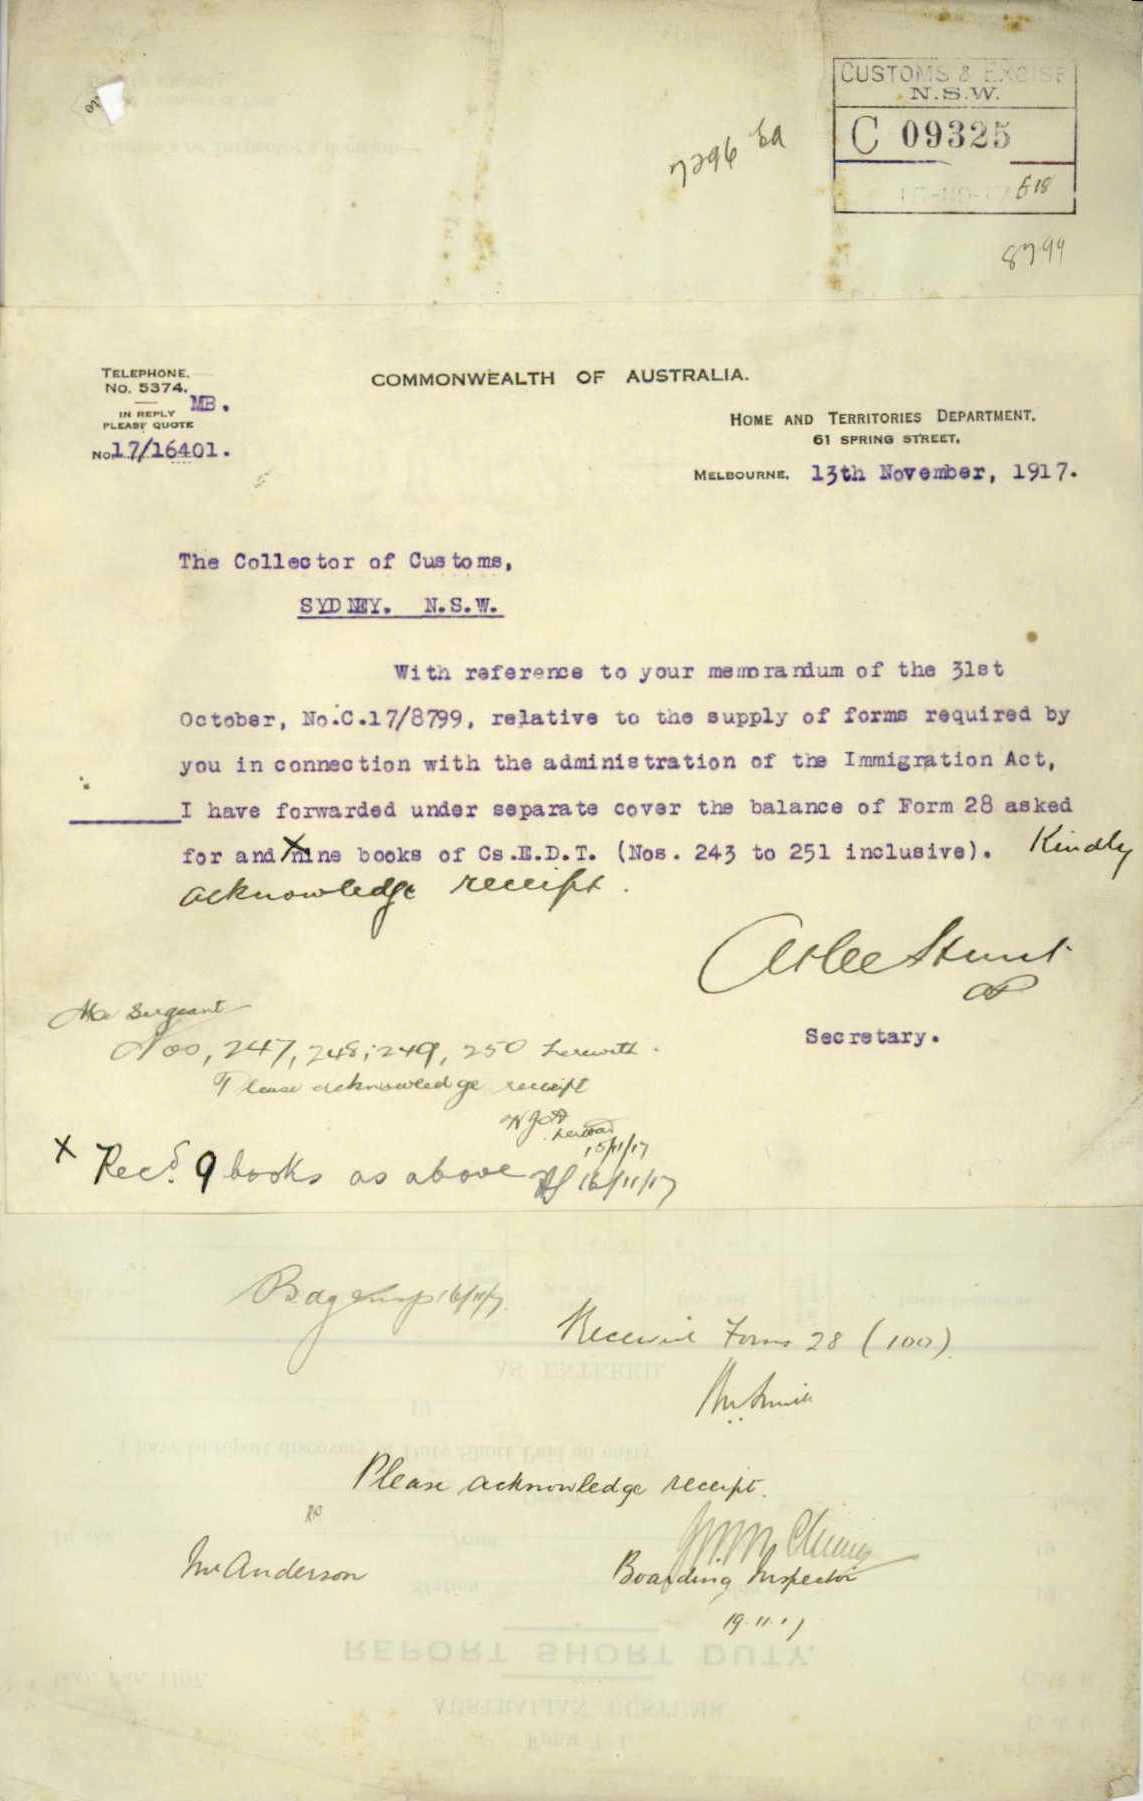 CUSTOMS & EXCISE
N.S.W.
C 09325
8799
TELEPHONE.
No. 5374.
MB.
IN REPLY
PLEASE QUOTE
No. 17/16401.
COMMONWEALTH OF AUSTRALIA.
HOME AND TERRITORIES DEPARTMENT.
61 SPRING STREET,
MELBOURNE, 13th November, 1917.
The Collector of Customs,
SYDNEY. N.S.W.
With reference to your memorandum of the 31st
October, No.C.17/8799, relative to the supply of forms required by
you in connection with the administration of the Immigration Act,
I have forwarded under separate cover the balance of Form 28 asked
for and nine books of Cs.E.D.T. (Nos. 243 to 251 inclusive). Kindly
acknowledge receipt.
Atlee Hunt
Secretary.
Mr Sergeant
Nos, 247, 248, 249, 250 herewith.
Please acknowledge receipt
15/11/17
x Recd. 9 books as above 16/11/17
16/11/7
Received Forms 28 (100)
Please acknowledge receipt.
Mr Anderson
Boarding Inspector
19.11.17
REPORT SHORT DUTY.